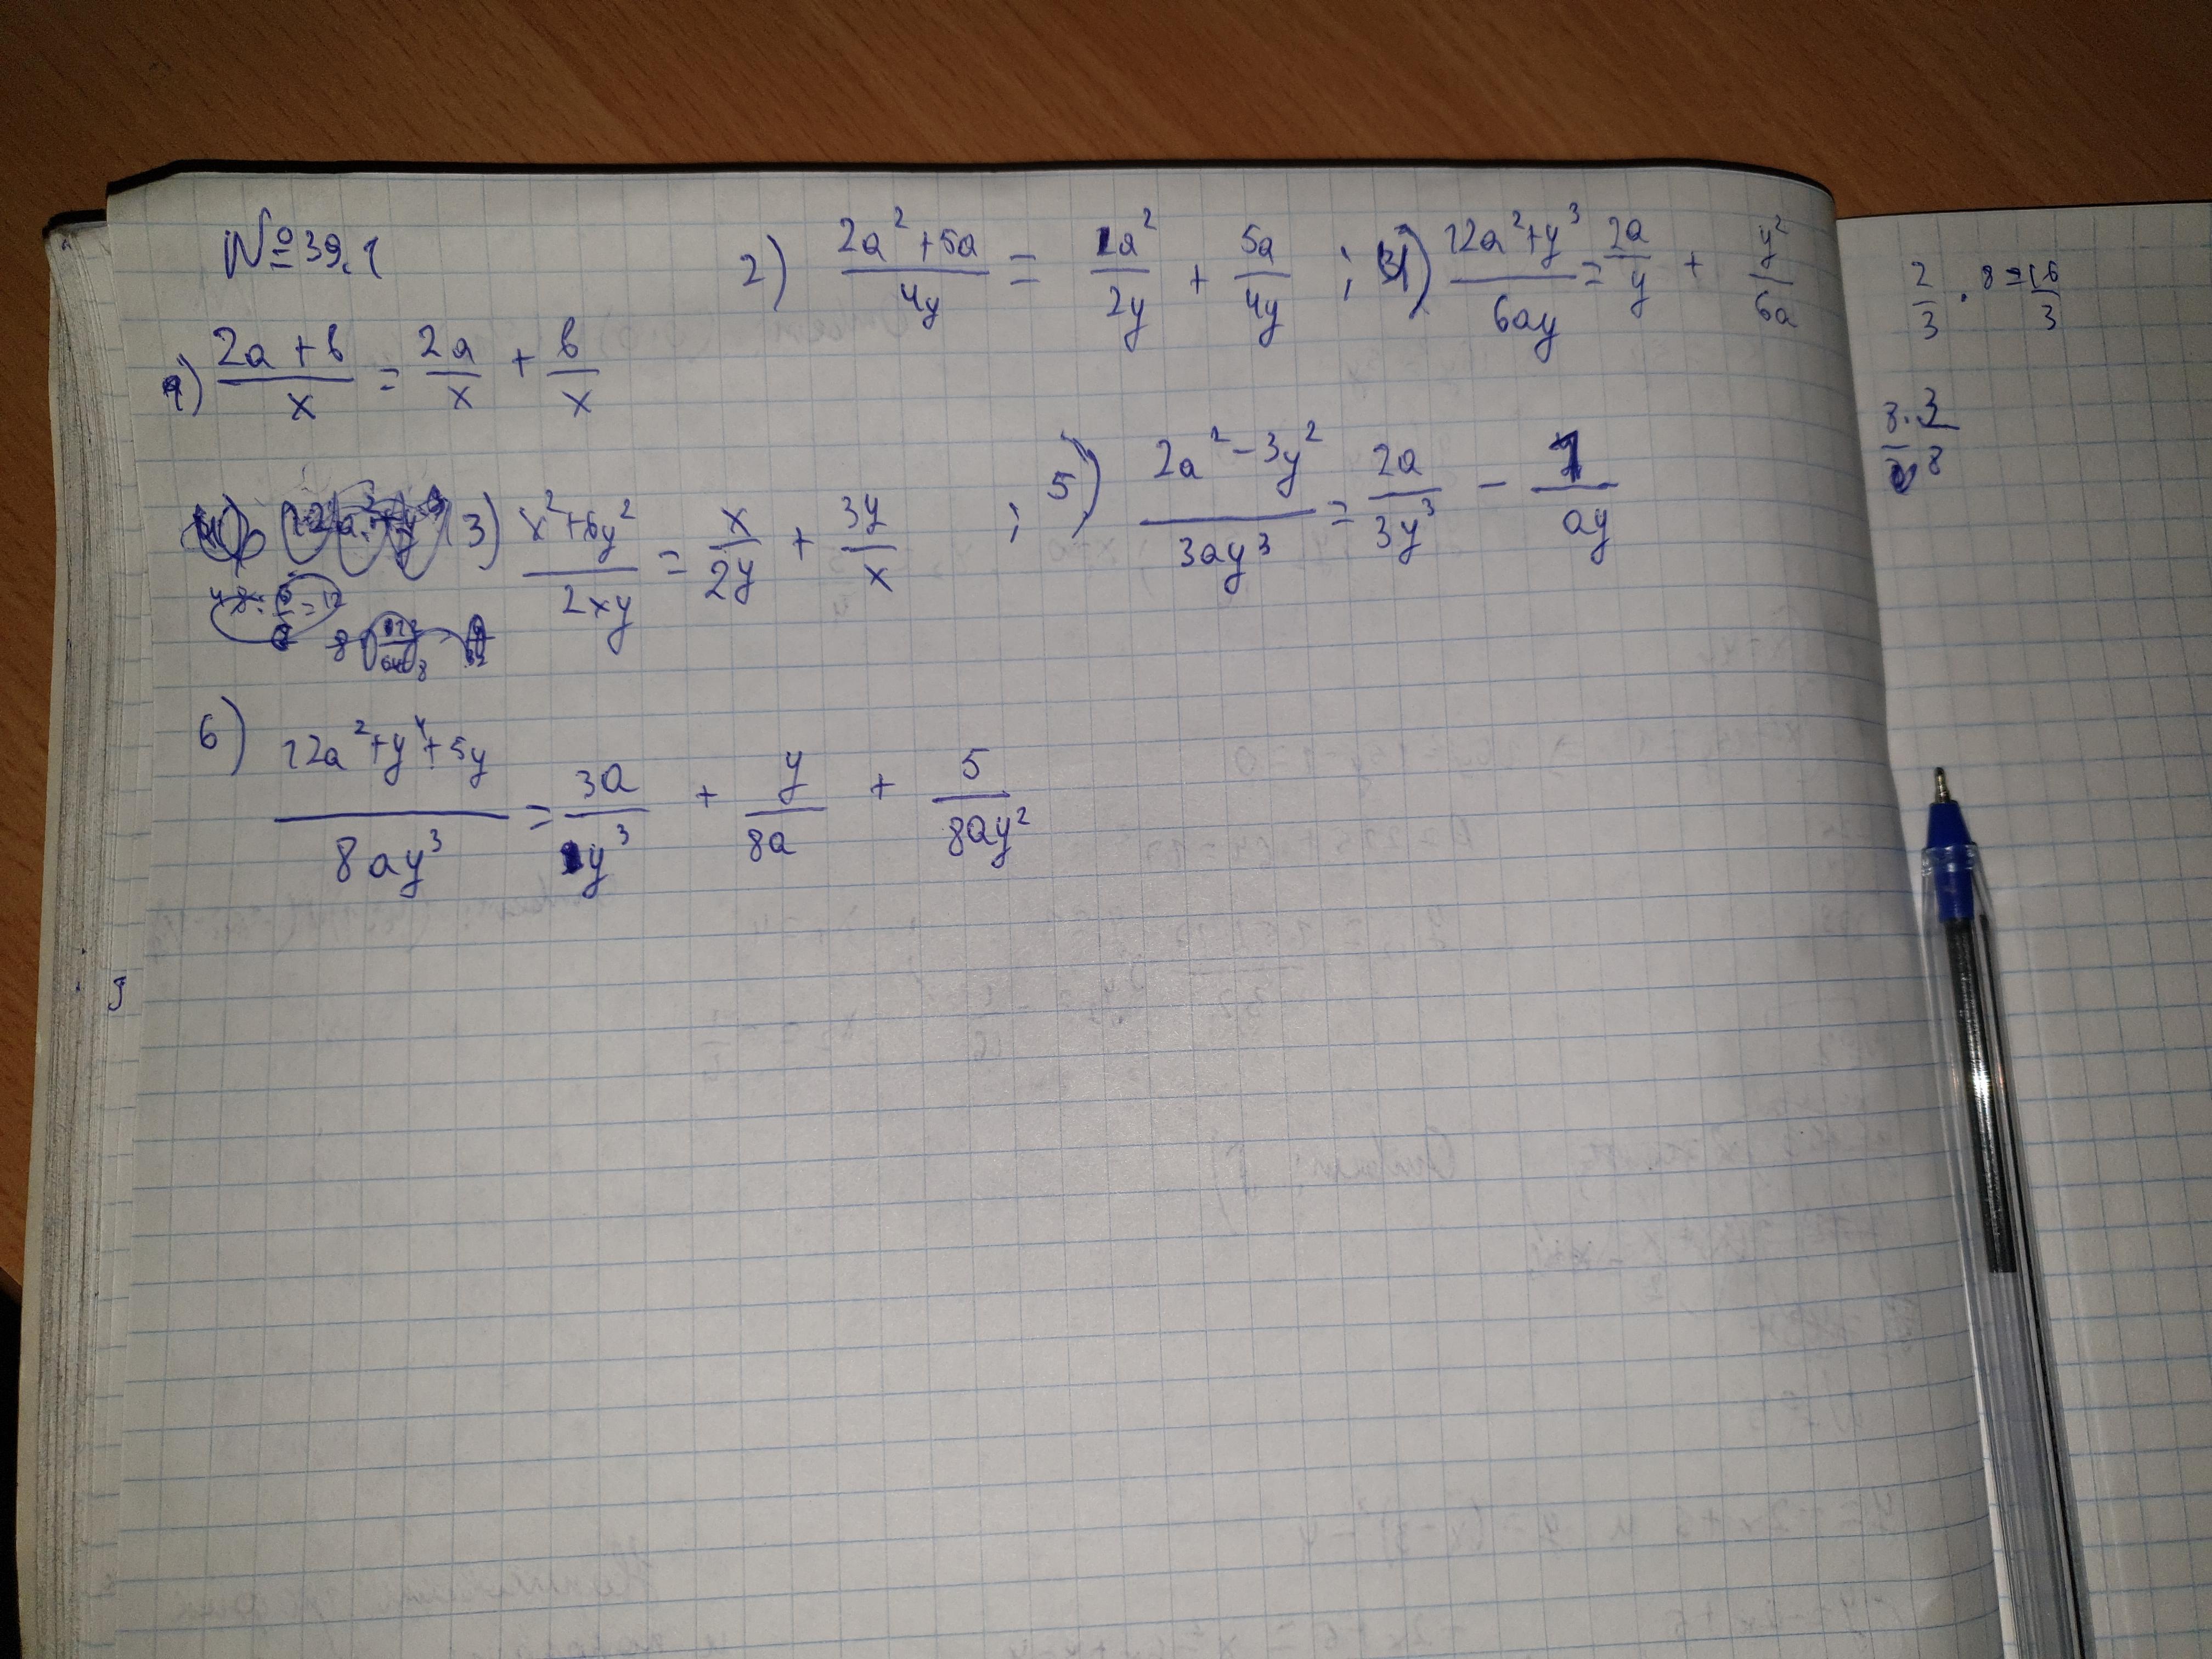 № 39.1
1) (2a + b)/x = 2a/x + b/x
2) (2a² + 5a)/4y = 1a²/2y + 5a/4y ; 4) (12a² + y³)/6ay = 2a/y + y²/6a
3) (x² + 6y²)/2xy = x/2y + 3y/x ; 5) (2a² - 3y²)/3ay³ = 2a/3y³ - 1/ay
6) (12a² + y⁴ + 5y)/8ay³ = 3a/2y³ + y/8a + 5/8ay²
2/3 · 8 = 16/3